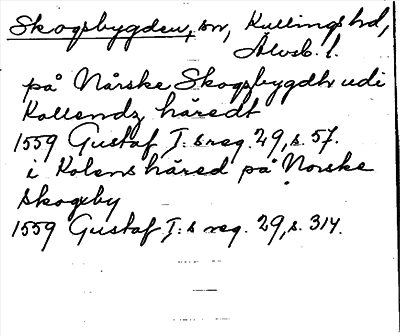 Skogsbygden, sn, Kullings hd,
Älvsb. l.
på Nårske Skogsbygdh udi
Kollendz häredt
1559 Gustaf I:s reg. 29, s. 57.
i Kolens häred på Norske
skogxby
1559 Gustaf I:s reg. 29, s. 314.